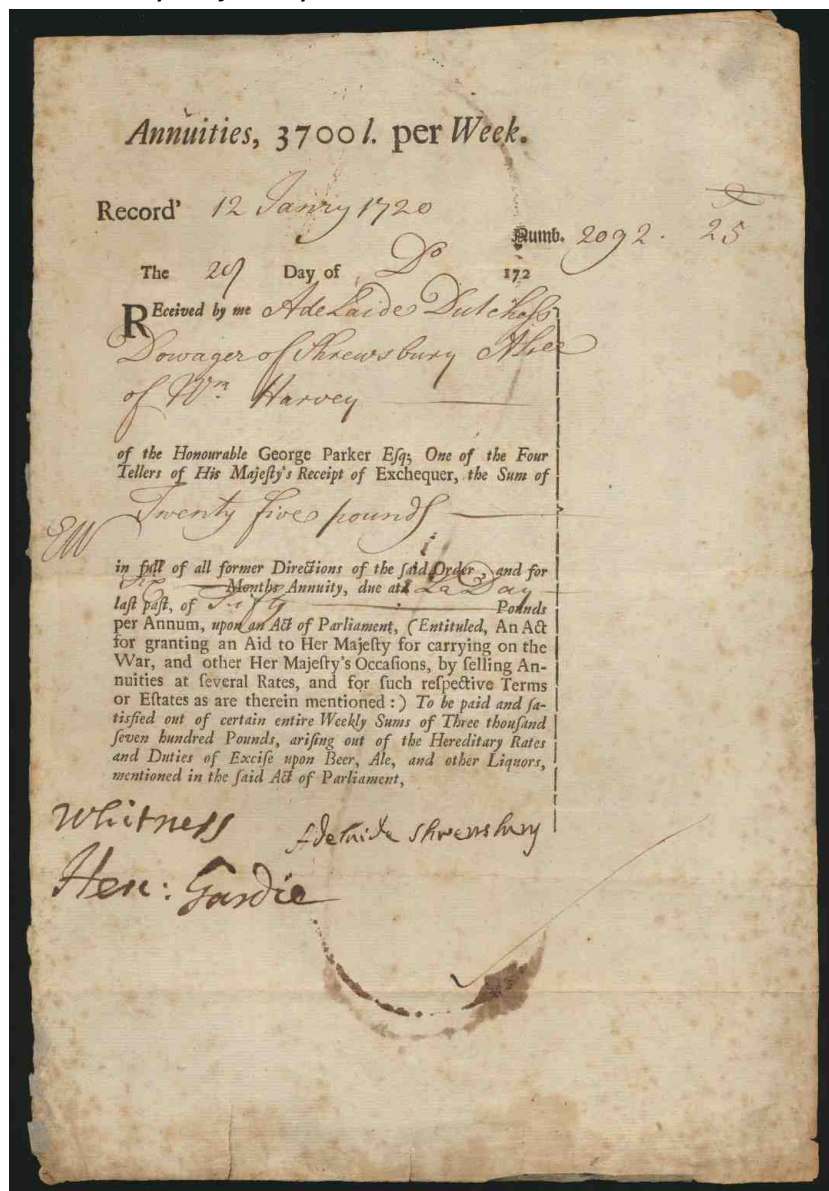 Annuities, 3700 l. per Week.
Record' 12 Janry 1720
Numb. 2092. 25
The 29 Day of Do 172
REceived by me Adelaide Dutchess
Dowager of Shrewsbury
of Wm Harvey
of the Honourable George Parker Esq; One of the Four
Tellers of His Majeſty's Receipt of Exchequer, the Sum of
Twenty five pounds
EW
in full of all former Directions of the ſaid Order, and for
Months Annuity, due at La Day
laſt paſt, of Fifty Pounds
per Annum, upon an Act of Parliament, (Entituled, An Act
for granting an Aid to Her Majeſty for carrying on the
War, and other Her Majeſty's Occaſions, by ſelling An-
nuities at ſeveral Rates, and for ſuch reſpective Terms
or Eſtates as are therein mentioned:) To be paid and ſa-
tisfied out of certain entire Weekly Sums of Three thouſand
ſeven hundred Pounds, ariſing out of the Hereditary Rates
and Duties of Exciſe upon Beer, Ale, and other Liquors,
mentioned in the ſaid Act of Parliament,
Whitness
Adelaide Shrewsbury
Hen: Gardie